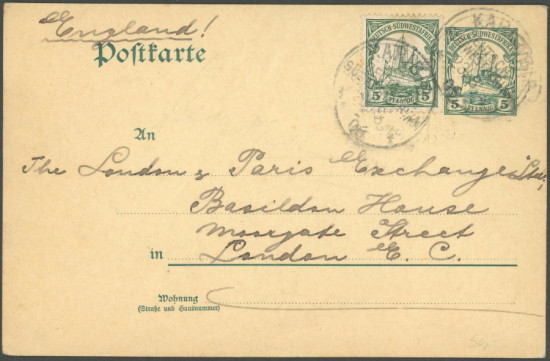 England!
Postkarte
DEUTSCH-SÜDWESTAFRIKA
5 PFENNIG 5
DEUTSCH-SÜDWESTAFRIKA
5 PFENNIG 5
An
The London & Paris Exchange Ltd,
Basildon House
Moorgate Street
in London E. C.
Wohnung
(Straße und Hausnummer)